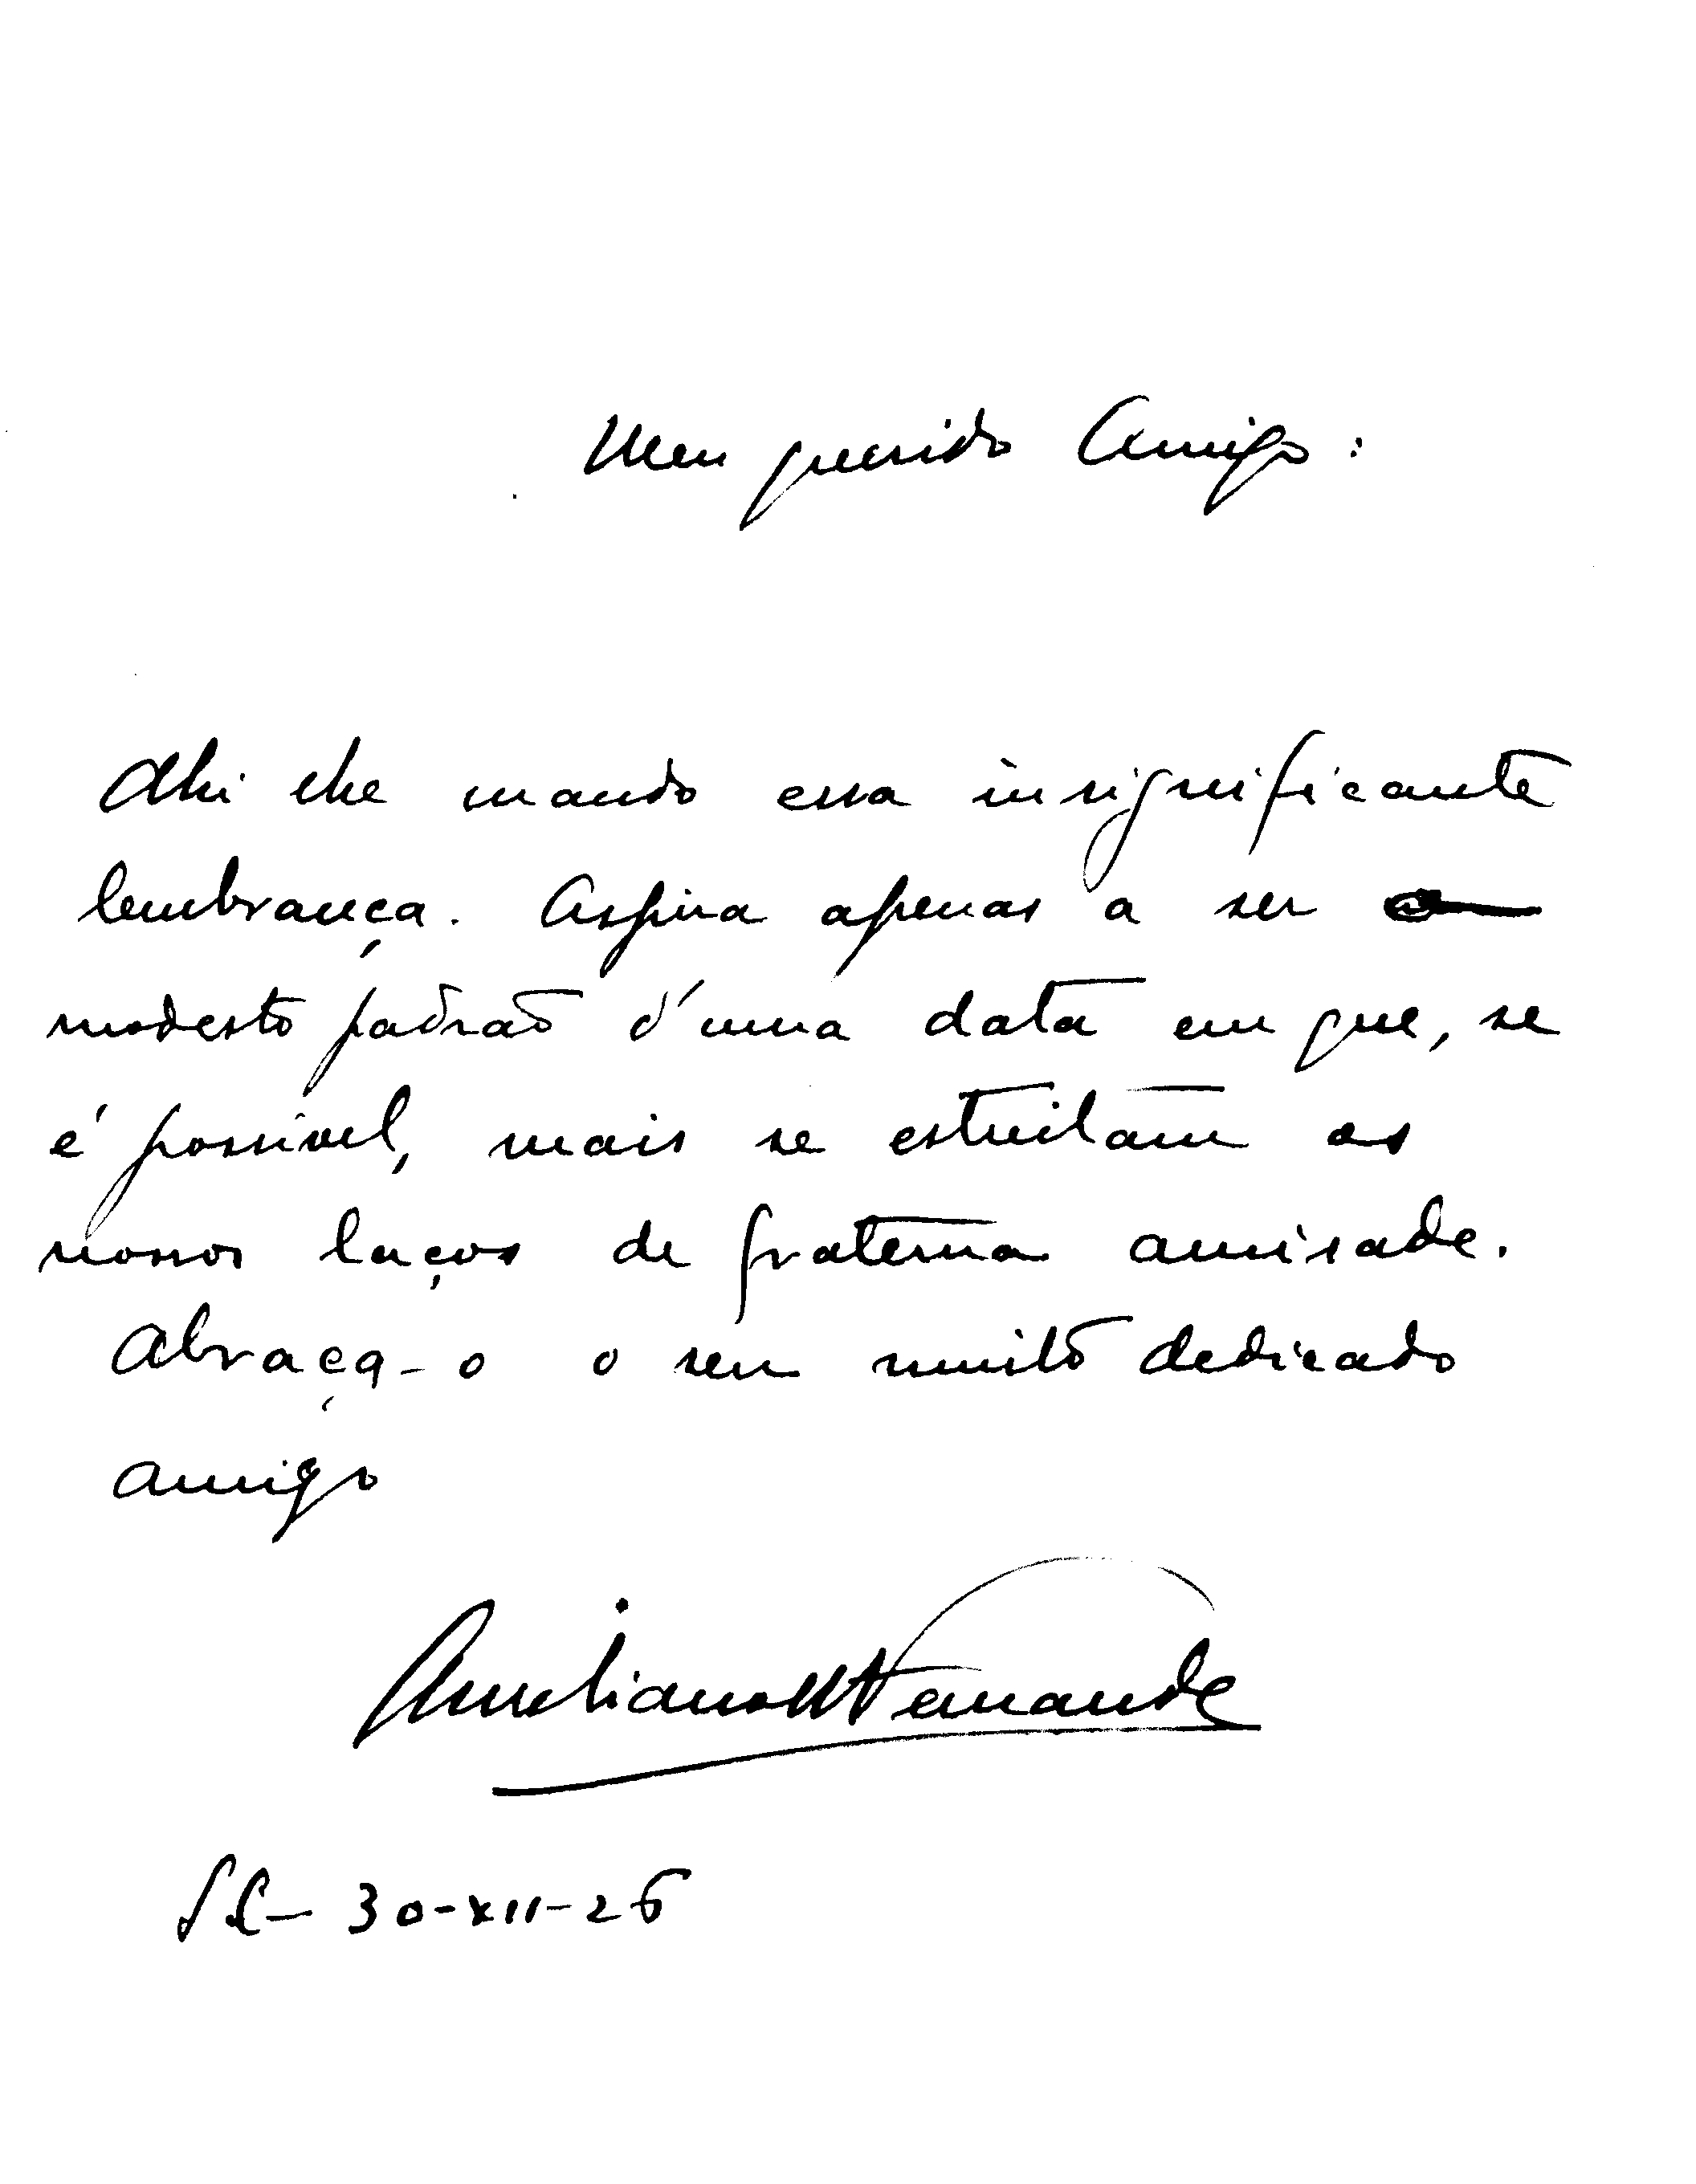 Meu querido Amigo:
Ahi lhe mando essa insignificante
lembrança. Aspira apenas a ser
modesto padrão d'uma data em que, se
é possivel, mais se estreitam os
nossos laços de fraterna amisade.
Abraça-o o seu muito dedicado
amigo
Aureliano Fernandes
30-XII-26